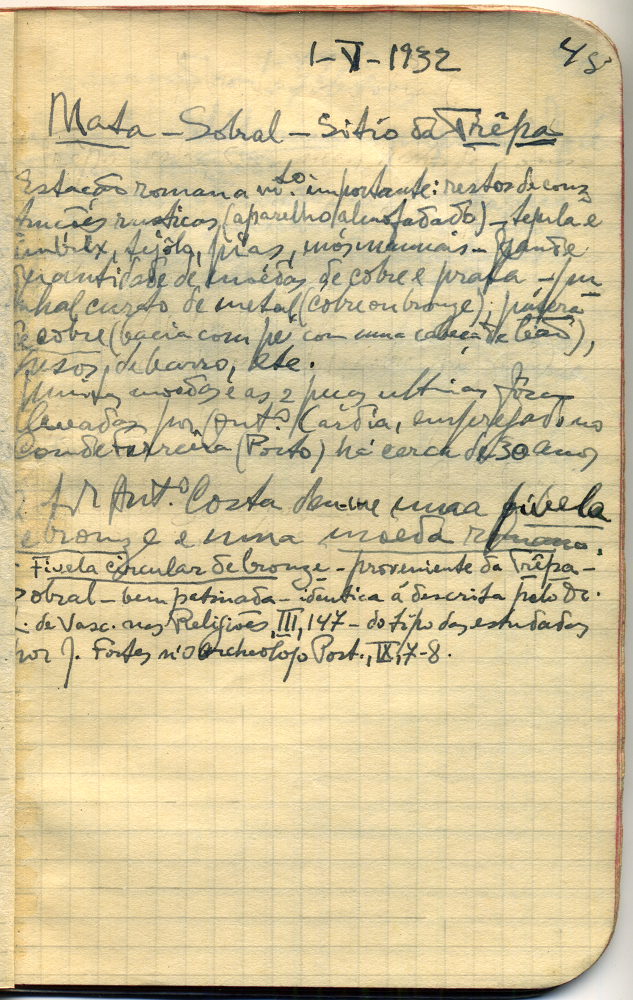 1-VI-1932
48
Mata - Sobral - Sitio da Trêpa
Estação romana mto. importante: restos de cons
truções rusticas (aparelho almofadado) - tegula e
imbrex, tijôlo, pias, mós manuais - grande
quantidade de moedas de cobre e prata - pu
nhal curato de metal (cobre ou bronze); pátera
de cobre (bacia com pé com uma cabeça de leão),
pesos de barro, etc.
moedas e as 2 peças ultimas fôram
levadas por Antº. Cardia, empregado no
Conde Ferreira (Porto) há cerca de 30 anos
O Sr Antº Costa deu-me uma fivela
de bronze e uma moeda romana.
- Fivela circular de bronze - proveniente da Trêpa -
Sobral - bem patinada - identica á descrita pelo Dr.
L. de Vasc. nas Religiões, III, 147 - do tipo das estudadas
por J. Fortes n'O Archeologo Port., IX, 7-8.